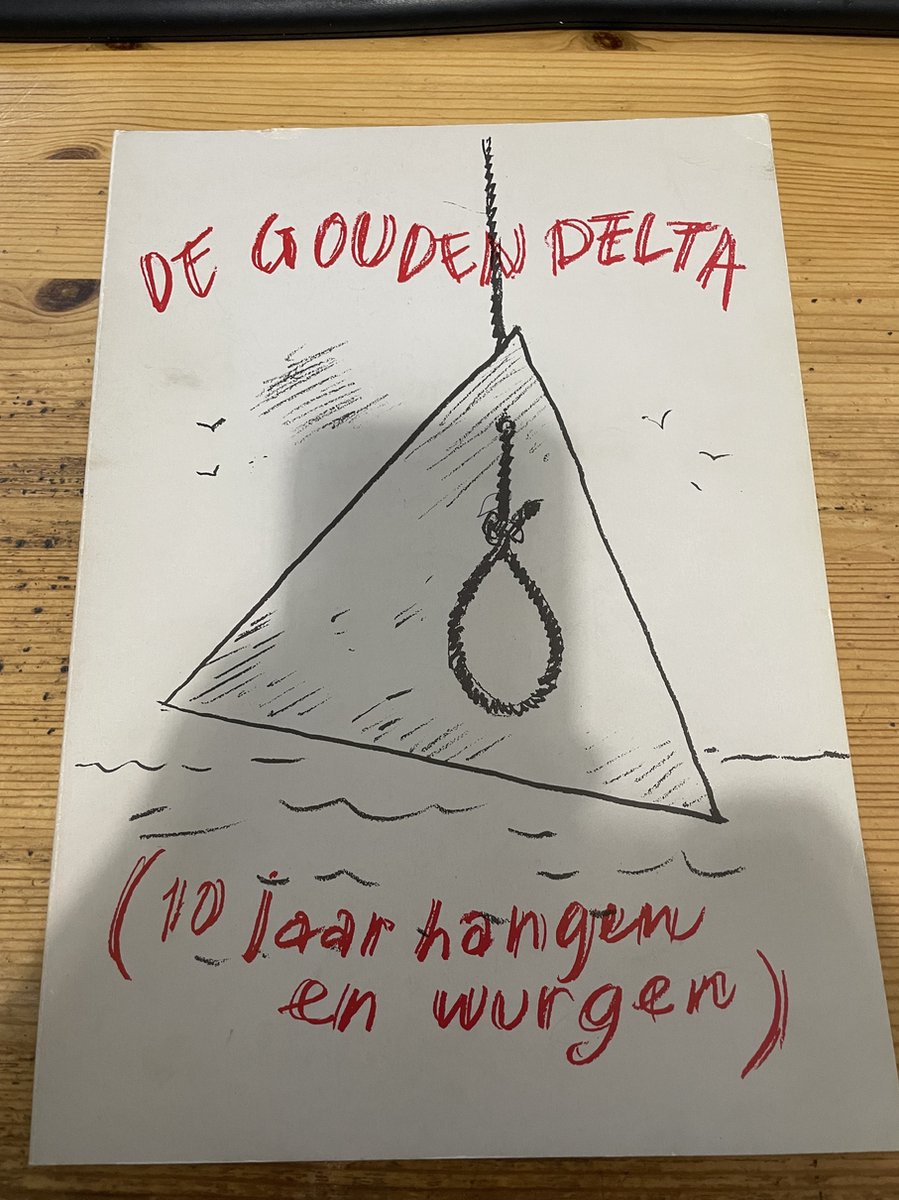 DE GOUDEN DELTA
(10 jaar hangen
en wurgen)